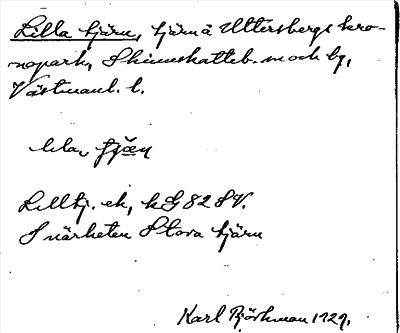 Lilla tjärn, tjärn å Uttersbergs kro-
nopark, Skinnskatteb. sn och bg,
Västmanl. l.
lilla, tjän
Lilltj. ek, k G 82 SV.
I närheten Stora tjärn
Karl Björkman 1929.